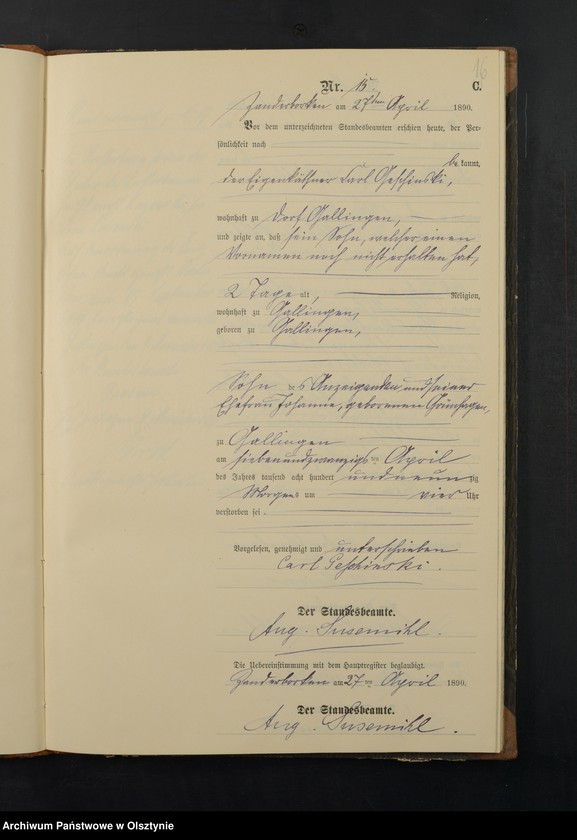 16
Nr. 15. C.
Zanderborken am 27ten April 1890.
Vor dem unterzeichneten Standesbeamten erschien heute, der Per-
sönlichkeit nach
be kannt,
der Eigenkäthner Carl Geschinski,
wohnhaft zu Dorf Gallingen,
und zeigte an, daß sein Sohn, welcher einen
Vornamen noch nicht erhalten hat,
2 Tage alt, Religion,
wohnhaft zu Gallingen,
geboren zu Gallingen,
Sohn des Anzeigenden und seiner
Ehefrau Johanne, geborenen Grünhagen,
zu Gallingen
am siebenundzwanzigsten April
des Jahres tausend acht hundert und neunzig
Morgens um vier Uhr
verstorben sei.
Vorgelesen, genehmigt und unterschrieben
Carl Geschinski.
Der Standesbeamte.
Aug. Susemihl.
Die Uebereinstimmung mit dem Hauptregister beglaubigt.
Zanderborken am 27ten April 1890.
Der Standesbeamte.
Aug. Susemihl.
Archiwum Państwowe w Olsztynie